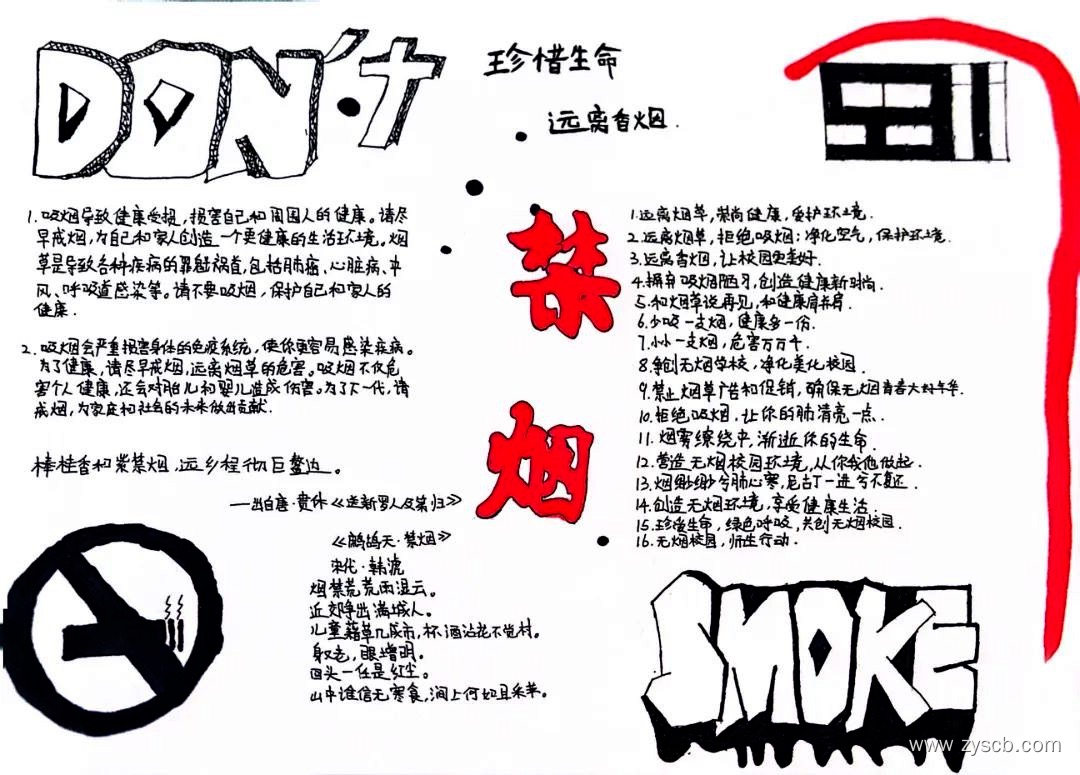 DON'T
珍惜生命
远离香烟.
1. 吸烟导致健康受损，损害自己和周围人的健康。请尽
早戒烟，为自己和家人创造一个更健康的生活环境。烟
草是导致各种疾病的罪魁祸首，包括肺癌、心脏病、中
风、呼吸道感染等。请不要吸烟，保护自己和家人的
健康.
2. 吸烟会严重损害身体的免疫系统，使你更容易感染疾病。
为了健康，请尽早戒烟，远离烟草的危害。吸烟不仅危
害个人健康，还会对胎儿和婴儿造成伤害。为了下一代，请
戒烟，为家庭和社会的未来做出贡献.
棒桂香和紫禁烟，远乡程彻巨鳌边。
——出自唐·贯休《送新罗人及第归》
《鹧鸪天·禁烟》
宋代·韩淲
烟禁荒荒雨湿云。
近郊争出满城人。
儿童藉草几成市，杯酒沾花不觉村。
身又老，眼增明。
回头一任是红尘。
山中谁信无寒食，涧上何如且采芊。
禁
烟
1.远离烟草，崇尚健康，爱护环境.
2.远离烟草，拒绝吸烟；净化空气，保护环境.
3.远离香烟，让校园更美好.
4.摒弃吸烟陋习，创造健康新时尚.
5.和烟草说再见，和健康肩并肩.
6.少吸一支烟，健康多一份.
7.小小一支烟，危害万万千.
8.争创无烟学校，净化美化校园.
9.禁止烟草广告和促销，确保无烟青春大好年华.
10.拒绝吸烟，让你的肺清亮一点.
11.烟雾缭绕中，渐逝你的生命.
12.营造无烟校园环境，从你我他做起.
13.烟缈缈兮肺心寒，尼古丁一进兮不复还.
14.创造无烟环境，享受健康生活.
15.珍惜生命，绿色呼吸，共创无烟校园.
16.无烟校园，师生行动.
SMOKE
www.zyscb.com